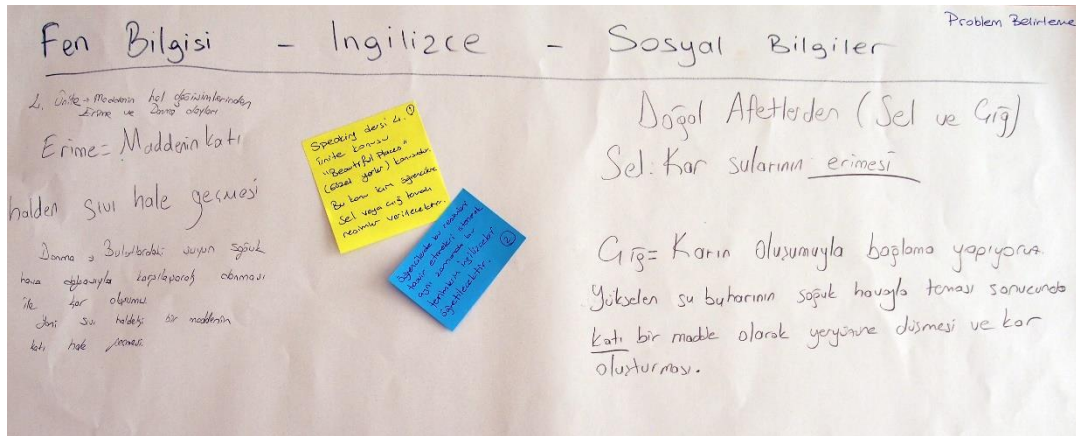 Problem Belirleme
Fen Bilgisi - Ingilizce - Sosyal Bilgiler
4. Ünite → Maddenin hal değişimlerinden
Erime ve Donma olayları
Erime = Maddenin katı
halden sıvı hale geçmesi
Donma → Bulutlardaki suyun soğuk
hava dalgasıyla karşılaşarak donması
ile kar oluşumu
Yani sıvı haldeki bir maddenin
katı hale geçmesi
Speaking dersi 4. ①
ünite konusu
"Beautiful Places"
(Güzel yerler) konusudur.
Bu konu için öğrencilere
Sel veya çığ temalı
resimler verilecektir.
öğrencilerde bir resimleri
tasvir etmeleri istenerek
aynı zamanda bir
terimlerin ingilizceleri
öğretilecektir. ②
Doğal Afetlerden (Sel ve Çığ)
Sel: Kar sularının erimesi
Çığ = Karın oluşumuyla bağlama yapıyoruz.
Yükselen su buharının soğuk havayla teması sonucunda
katı bir madde olarak yeryüzüne düşmesi ve kar
oluşturması.